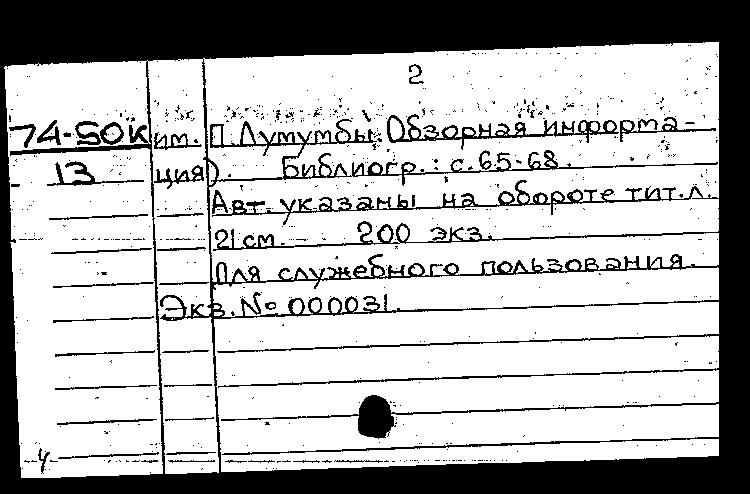 2
74-50к им. П. Лумумбы. Обзорная информа-
13 ция). Библиогр.: с. 65-68.
Авт. указаны на обороте тит. л.
21 см. 200 экз.
Для служебного пользования.
Экз. № 000031.
4